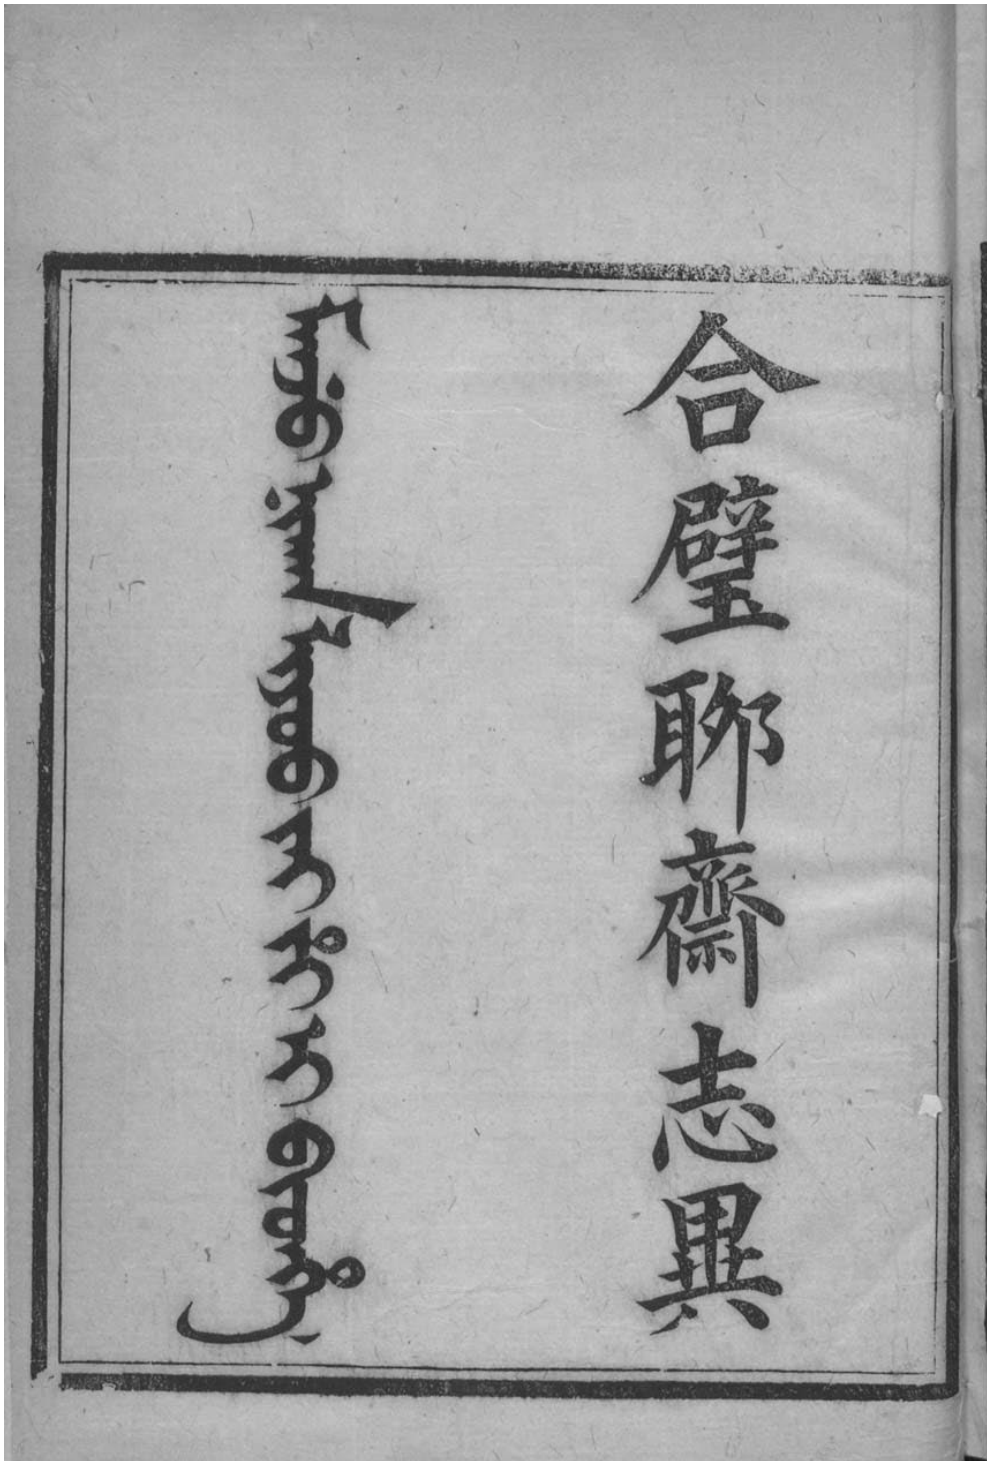 合璧聊齋志異
ᠮᠠᠨᠵᡠ ᠨᡳᡴᠠᠨ ᠯᡳᠶᠣᠣ ᠵᠠᡳ ᡷᡳ ᡳ ᠪᡳᡨᡥᡝ